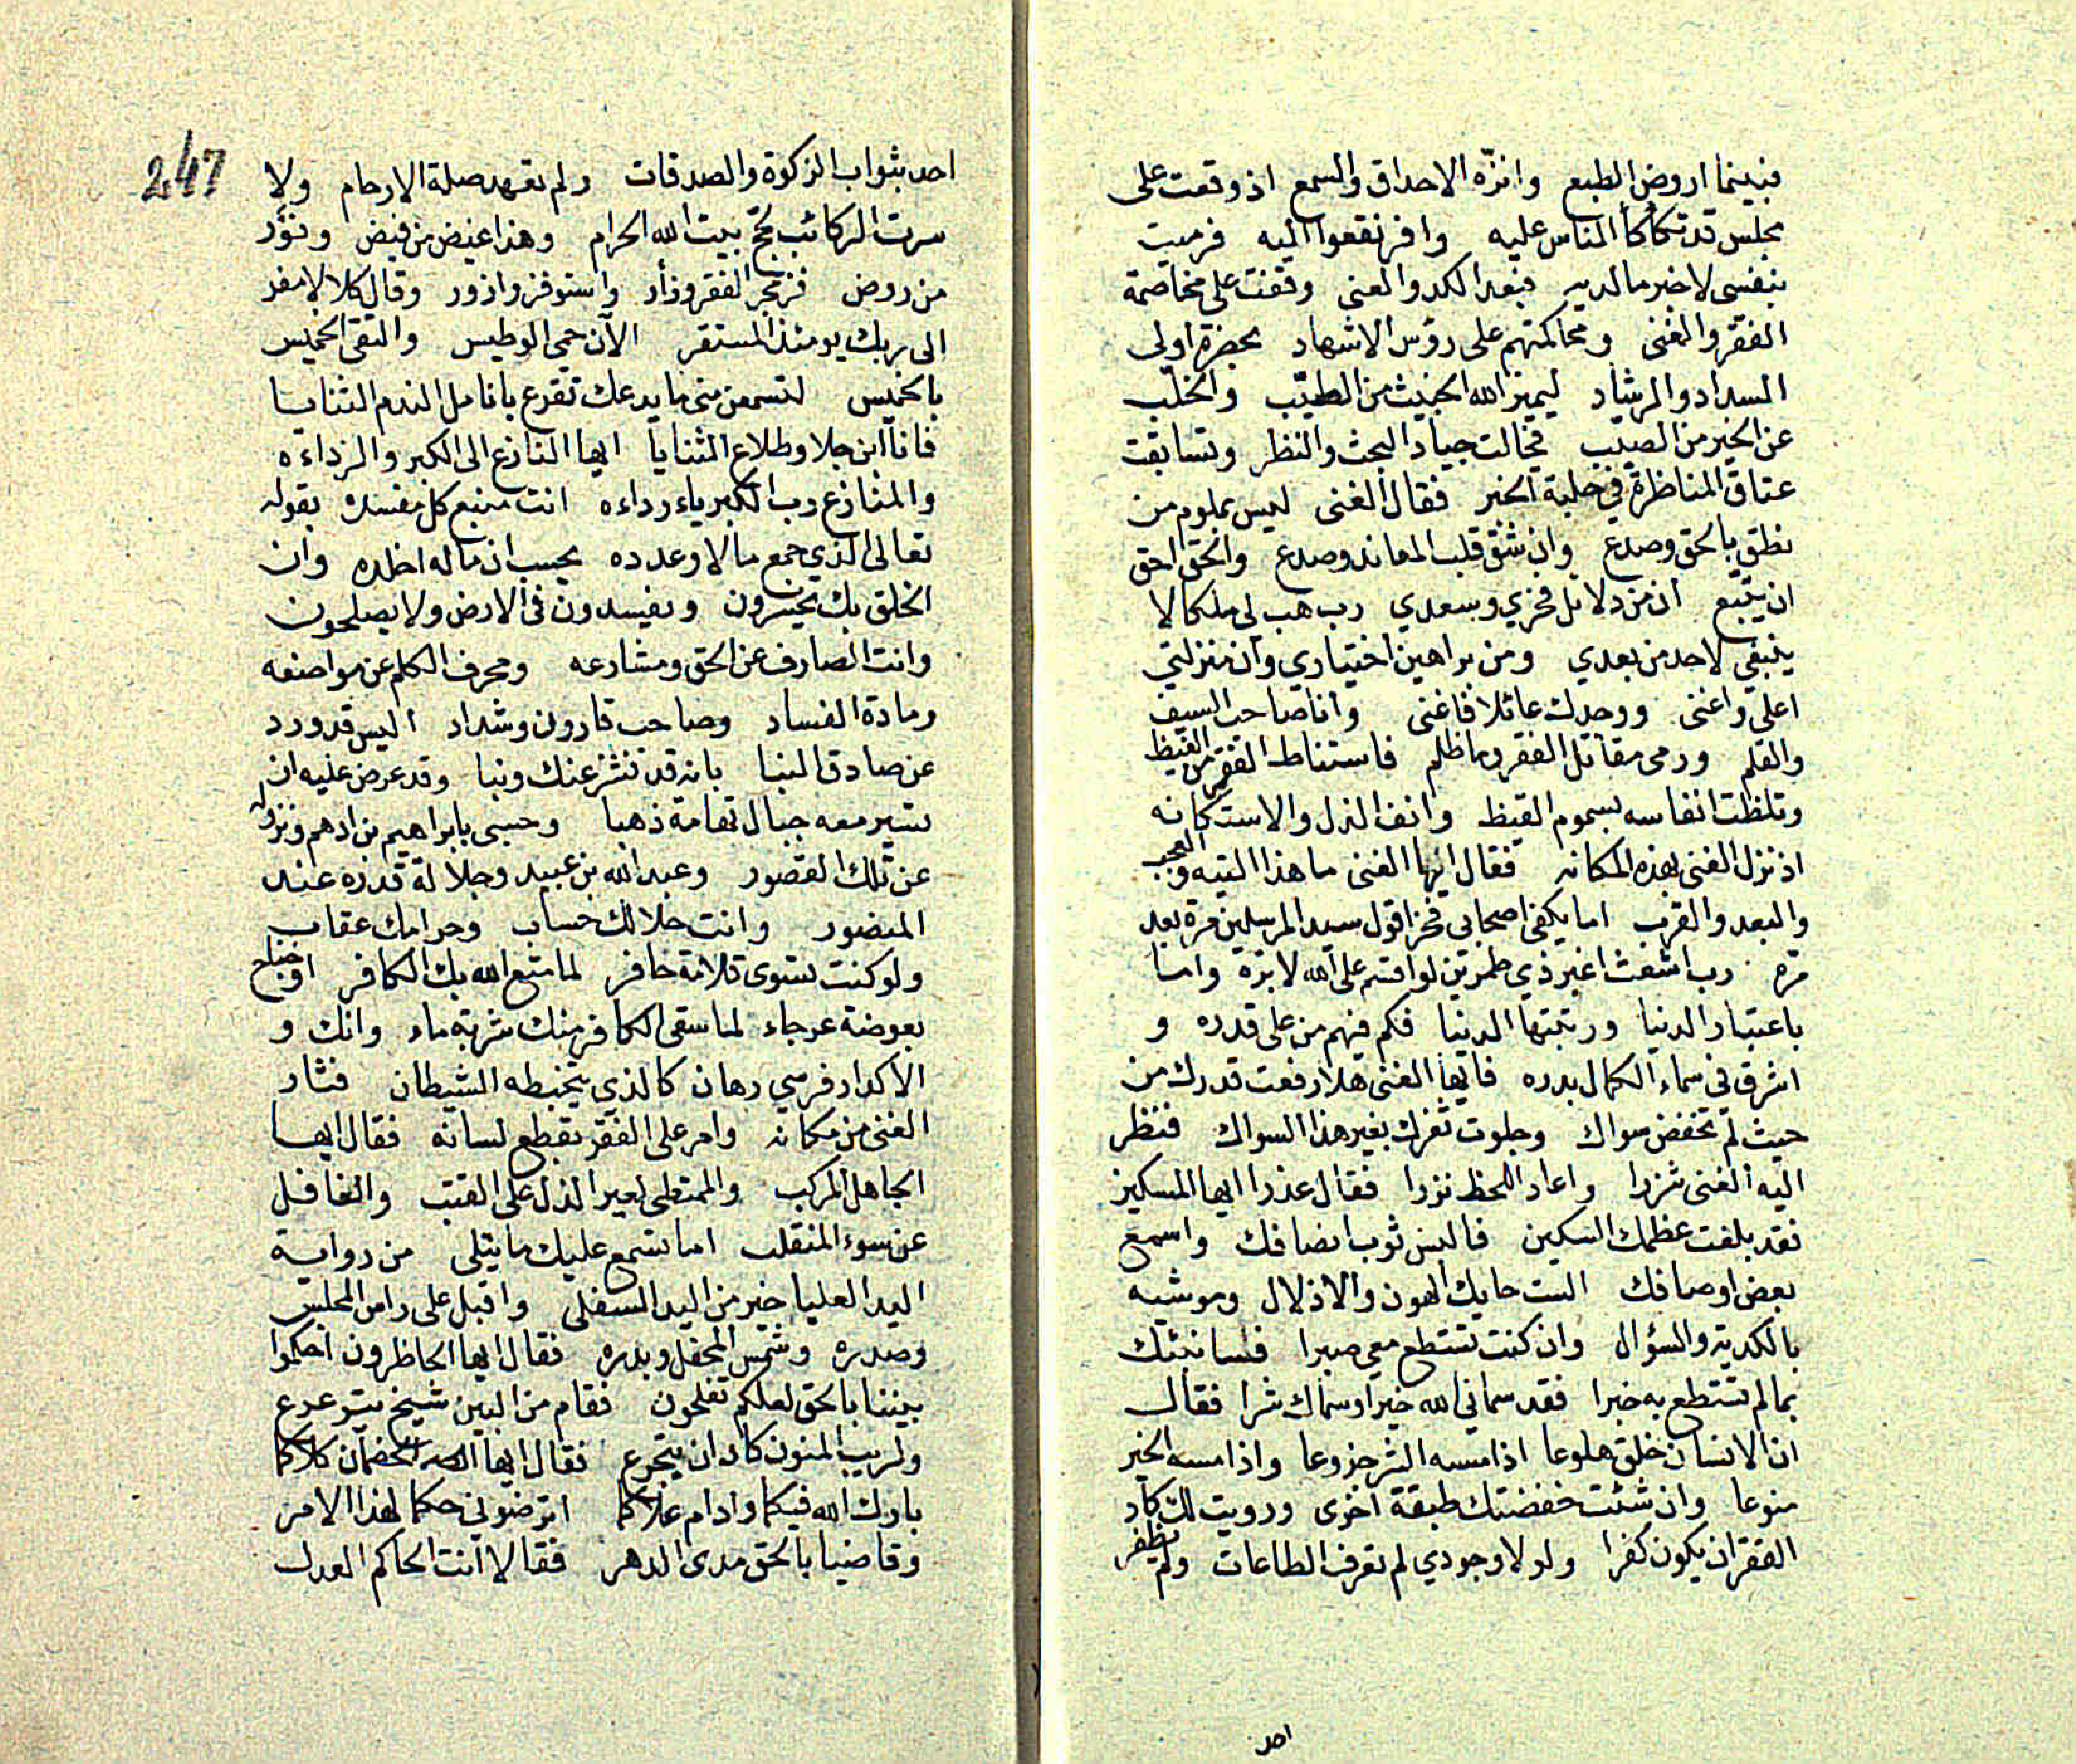 فبينما اروض الطبع وانزّه الاحداق والسمع اذ وقعت على
مجلس قد تكأكأ الناس عليه وافرنقعوا اليه فرميت
بنفسى لاخبر ما لديه فبعد الكد والعنى وقفت على مخاصمة
الفقر والغنى ومحاكمتهم على رؤس الاشهاد بحضرة اولى
السداد والرشاد ليميز الله الخبيث من الطيّب والخلّب
عن الخير من الصيّب فجالت جياد البحث والنظر وتسابقت
عتاق المناظرة فى حلبة الخبر فقال الغنى ليس بملوم من
نطق بالحق وصدع وان شق قلب المعاند وصدع والحق احق
ان يتّبع ان من دلايل فخري وسعدي رب هب لى ملكا لا
ينبغى لاحد من بعدي ومن براهين اختياري وان منزلتي
اعلى واغنى ووجدك عائلا فاغنى وانا صاحب السيف
والقلم ورمى مقاتل الفقر وما ظلم فاستشاط الفقر من الغيظ
وتلظت انفاسه بسموم القيظ وانف الذل والاستكانه
اذ نزل الغنى بهذه المكانه فقال ايها الغنى ما هذا التيه والعجب
والبعد والقرب اما يكفى اصحابى فخرا قول سيد المرسلين مرة بعد
مرّه رب اشعث اغبر ذي طمرين لو اقسم على الله لابرّه واما
باعتبار الدنيا ورتبتها الدنيا فكم فيهم من على قدره و
اشرق فى سماء الكمال بدره فايها الغنى هلا رفعت قدرك من
حيث لم تخفض سواك وجلوت ثغرك بغير هذا السواك فنظر
اليه الغنى شزرا واعاد اللحظ نزرا فقال عذرا ايها المسكين
فقد بلغت عظمك السكين فالبس ثوب انصافك واسمع
بعض اوصافك الست حايك الهون والاذلال وموشيه
بالكدية والسؤال وان كنت تستطع معى صبرا فسانبئك
بما لم تستطع به خبرا فقد سمانى الله خيرا وسماك شرا فقال
ان الانسان خلق هلوعا اذا مسه الشر جزوعا واذا مسه الخير
منوعا وان شئت خفضتك طبقة اخرى ورويت لك كاد
الفقر ان يكون كفرا ولولا وجودي لم تعرف الطاعات ولم يظفر
احد
247
احد بثواب الزكوة والصدقات ولم تعهد صلة الارحام ولا
سرت الركائب لحج بيت الله الحرام وهذا غيض من فيض ونَوْر
من روض فزمجر الفقر وزأر واستوفز وازور وقال كلا لا مفر
الى ربك يومئذ المستقر الآن حمى الوطيس والتقى الخميس
بالخميس لتسمعن منى ما يدعك تقرع بانامل الندم الثنايا
فانا ابن جلا وطلاع الثنايا ايها النازع الى الكبر والزداءه
والمنازع رب الكبرياء رداءه انت منبع كل مفسدة بقوله
تعالى الذي جمع مالا وعدده يحسب ان ماله اخلده وان
الخلق بك يخسرون ويفسدون فى الارض ولا يصلحون
وانت الصارف عن الحق ومشارعه ومحرف الكلم عن مواضعه
ومادة الفساد وصاحب قارون وشداد اليس قد ورد
عن صادق النبا بانه قد نشز عنك ونبا وقد عرض عليه ان
تسير معه جبال تهامة ذهبا وحسبى بابراهيم بن ادهم ونزوله
عن تلك القصور وعبد الله بن عبيد وجلالة قدره عند
المنصور وانت حلالك حساب وحرامك عقاب
ولو كنت تسوى قلامة حافر لما متع الله بك الكافر او جناح
بعوضة عرجاء لما سقى الكافر منك شربة ماء وانك و
الاكدار فرسي رهان كالذي يتخبطه الشيطان فثار
الغنى من مكانه وامر على الفقر بقطع لسانه فقال ايها
الجاهل المركب والممتطى لعير الذل على القتب والغافل
عن سوء المنقلب اما تسمع عليك ما يتلى من رواية
اليد العليا خير من اليد السفلى واقبل على راس المجلس
وصدره وشمس المحفل وبدره فقال ايها الحاظرون احكموا
بيننا بالحق لعلكم تفلحون فقام من البين شيخ يتوعرع
ولريب المنون كاد ان يتجرع فقال ايها الخصمان كلاكما
بارك الله فيكما وادام علاكما اترضونى حكما لهذا الامر
وقاضيا بالحق مدى الدهر فقالا انت الحاكم العدل